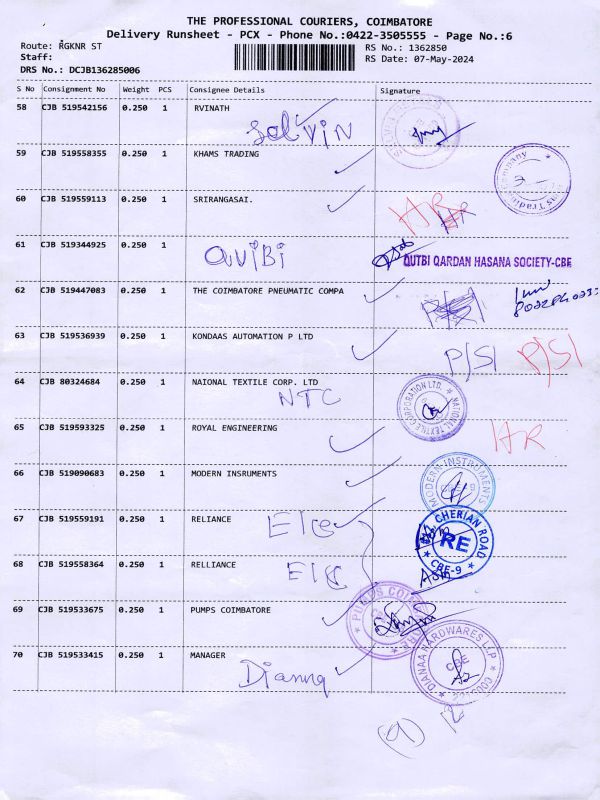 THE PROFESSIONAL COURIERS, COIMBATORE
Delivery Runsheet - PCX - Phone No.:0422-3505555 - Page No.:6
Route: RGKNR ST RS No.: 1362850
Staff: RS Date: 07-May-2024
DRS No.: DCJB136285006
S No Consignment No Weight PCS Consignee Details Signature
58 CJB 519542156 0.250 1 RVINATH
Selvin
59 CJB 519558355 0.250 1 KHAMS TRADING
60 CJB 519559113 0.250 1 SRIRANGASAI.
HR HR
61 CJB 519344925 0.250 1
QUIBI QUTBI QARDAN HASANA SOCIETY-CBE
62 CJB 519447083 0.250 1 THE COIMBATORE PNEUMATIC COMPA
63 CJB 519536939 0.250 1 KONDAAS AUTOMATION P LTD
P/SI P/SI
64 CJB 80324684 0.250 1 NAIONAL TEXTILE CORP. LTD
NTC NATIONAL TEXTILE CORPORATION LTD.
65 CJB 519593325 0.250 1 ROYAL ENGINEERING
HR
66 CJB 519090683 0.250 1 MODERN INSRUMENTS
MODERN INSTRUMENTS
67 CJB 519559191 0.250 1 RELIANCE
Ele CHERIAN ROAD RE CBE-9
68 CJB 519558364 0.250 1 RELLIANCE
Ele
69 CJB 519533675 0.250 1 PUMPS COIMBATORE
PUMPS
70 CJB 519533415 0.250 1 MANAGER
Dianna DIANAA HARDWARES LLP CBE